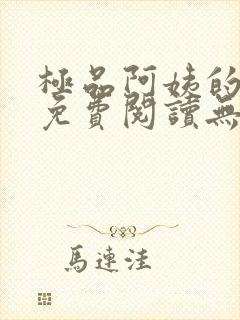 極品阿姨的
免費閱讀無
馬連洼